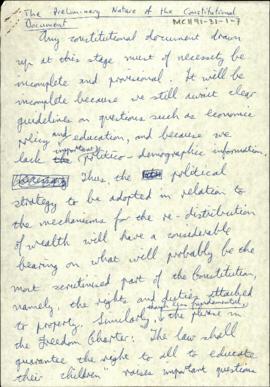 The Preliminary Nature of the Constitutional
Document
MCH91-31-1-7
Any constitutional document drawn
up at this stage must of necessity be
incomplete and provisional. It will be
incomplete because we still await clear
guidelines on questions such as economic
policy and education, and because we
lack important politico-demographic information.
Thus the political
strategy to be adopted in relation to
the mechanisms for the re-distribution
of wealth will have a considerable
bearing on what will probably be the
most scrutinised part of the Constitution,
namely, the rights and duties attached
to property. Similarly, though less fundamentally, the phrase in
the Freedom Charter: The law shall
guarantee the right to all to educate
their children" raises important questions